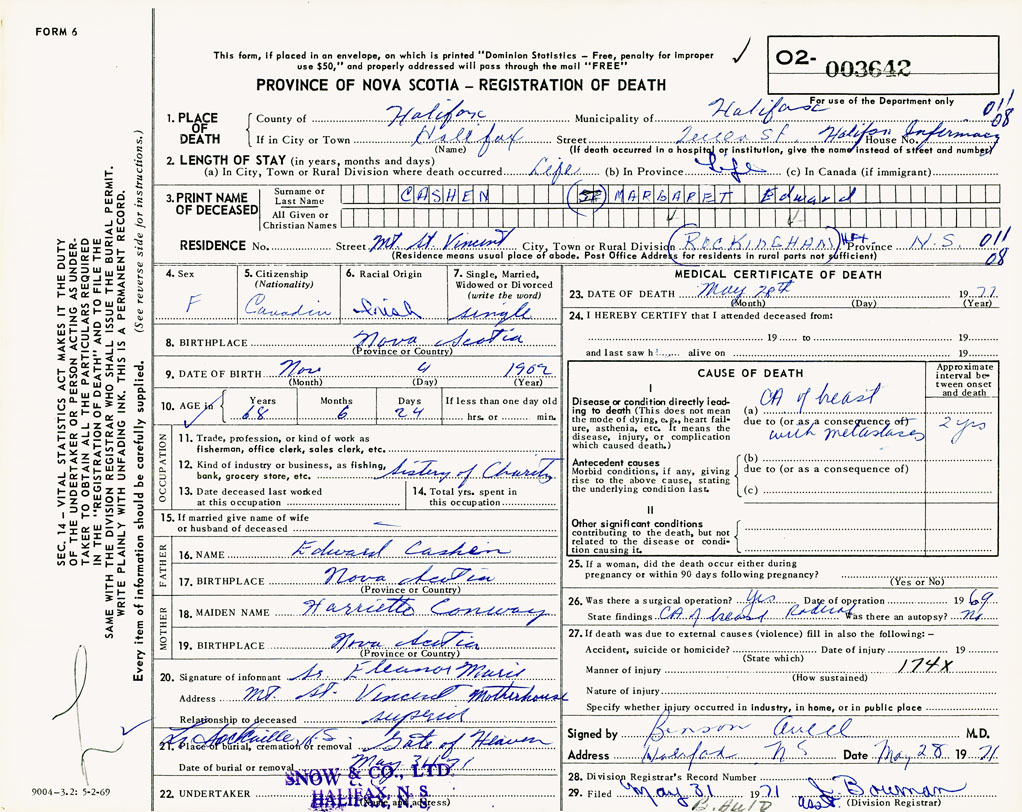 FORM 6
This form, if placed in an envelope, on which is printed "Dominion Statistics – Free, penalty for improper
use $50," and properly addressed will pass through the mail "FREE"
PROVINCE OF NOVA SCOTIA – REGISTRATION OF DEATH
O2- 003642
For use of the Department only
011
08
1. PLACE OF DEATH
County of Halifax Municipality of Halifax
If in City or Town Halifax Street Queen St. Halifax Infirmary House No.
(Name) (If death occurred in a hospital or institution, give the name instead of street and number)
2. LENGTH OF STAY (in years, months and days)
(a) In City, Town or Rural Division where death occurred Life (b) In Province Life (c) In Canada (if immigrant)
3. PRINT NAME OF DECEASED
Surname or Last Name CASHEN (SR) MARGARET Edward
All Given or Christian Names
RESIDENCE No. Street Mt. St. Vincent City, Town or Rural Division ROCKINGHAM Hfx Province N.S. 011
08
(Residence means usual place of abode. Post Office Address for residents in rural parts not sufficient)
4. Sex F
5. Citizenship (Nationality) Canadin
6. Racial Origin Irish
7. Single, Married, Widowed or Divorced (write the word) single
8. BIRTHPLACE Nova Scotia
(Province or Country)
9. DATE OF BIRTH Nov 4 1902
(Month) (Day) (Year)
10. AGE in Years 68 Months 6 Days 24 If less than one day old hrs. or min.
OCCUPATION
11. Trade, profession, or kind of work as
fisherman, office clerk, sales clerk, etc.
12. Kind of industry or business, as fishing,
bank, grocery store, etc. Sisters of Charity
13. Date deceased last worked
at this occupation
14. Total yrs. spent in
this occupation
15. If married give name of wife
or husband of deceased —
FATHER
16. NAME Edward Cashen
17. BIRTHPLACE Nova Scotia
(Province or Country)
MOTHER
18. MAIDEN NAME Harriette Conway
19. BIRTHPLACE Nova Scotia
(Province or Country)
20. Signature of informant Sr. Eleanor Marie
Address Mt. St. Vincent Motherhouse
Relationship to deceased superior
Lr Sackville N.S.
21. Place of burial, cremation or removal Gate of Heaven
Date of burial or removal May 31/71
22. UNDERTAKER SNOW & CO., LTD.
HALIFAX, N. S.
(Name and address)
MEDICAL CERTIFICATE OF DEATH
23. DATE OF DEATH May 28th 1971
(Month) (Day) (Year)
24. I HEREBY CERTIFY that I attended deceased from:
19 to 19
and last saw h alive on 19
CAUSE OF DEATH
Approximate interval between onset and death
I
Disease or condition directly leading to death (This does not mean the mode of dying, e.g., heart failure, asthenia, etc. It means the disease, injury, or complication which caused death.)
(a) CA of breast
due to (or as a consequence of)
with metastases 2 yrs
Antecedent causes
Morbid conditions, if any, giving rise to the above cause, stating the underlying condition last.
(b)
due to (or as a consequence of)
(c)
II
Other significant conditions
contributing to the death, but not related to the disease or condition causing it.
25. If a woman, did the death occur either during
pregnancy or within 90 days following pregnancy?
(Yes or No)
26. Was there a surgical operation? Yes Date of operation 1969
State findings CA of breast Radical Was there an autopsy? No
27. If death was due to external causes (violence) fill in also the following: –
Accident, suicide or homicide? Date of injury 19
(State which)
Manner of injury 174X
(How sustained)
Nature of injury
Specify whether injury occurred in industry, in home, or in public place
Signed by Benson Auld M.D.
Address Halifax NS Date May 28 1971
28. Division Registrar's Record Number
29. Filed May 31 1971 J. Bowman
B. Auld Asst. Division Registrar
SEC. 14 – VITAL STATISTICS ACT MAKES IT THE DUTY
OF THE UNDERTAKER OR PERSON ACTING AS UNDER-
TAKER TO OBTAIN ALL THE PARTICULARS REQUIRED
IN THE "REGISTRATION OF DEATH" AND TO FILE THE
SAME WITH THE DIVISION REGISTRAR WHO SHALL ISSUE THE BURIAL PERMIT.
WRITE PLAINLY WITH UNFADING INK. THIS IS A PERMANENT RECORD.
Every item of information should be carefully supplied. (See reverse side for instructions.)
9004-3.2: 5-2-69